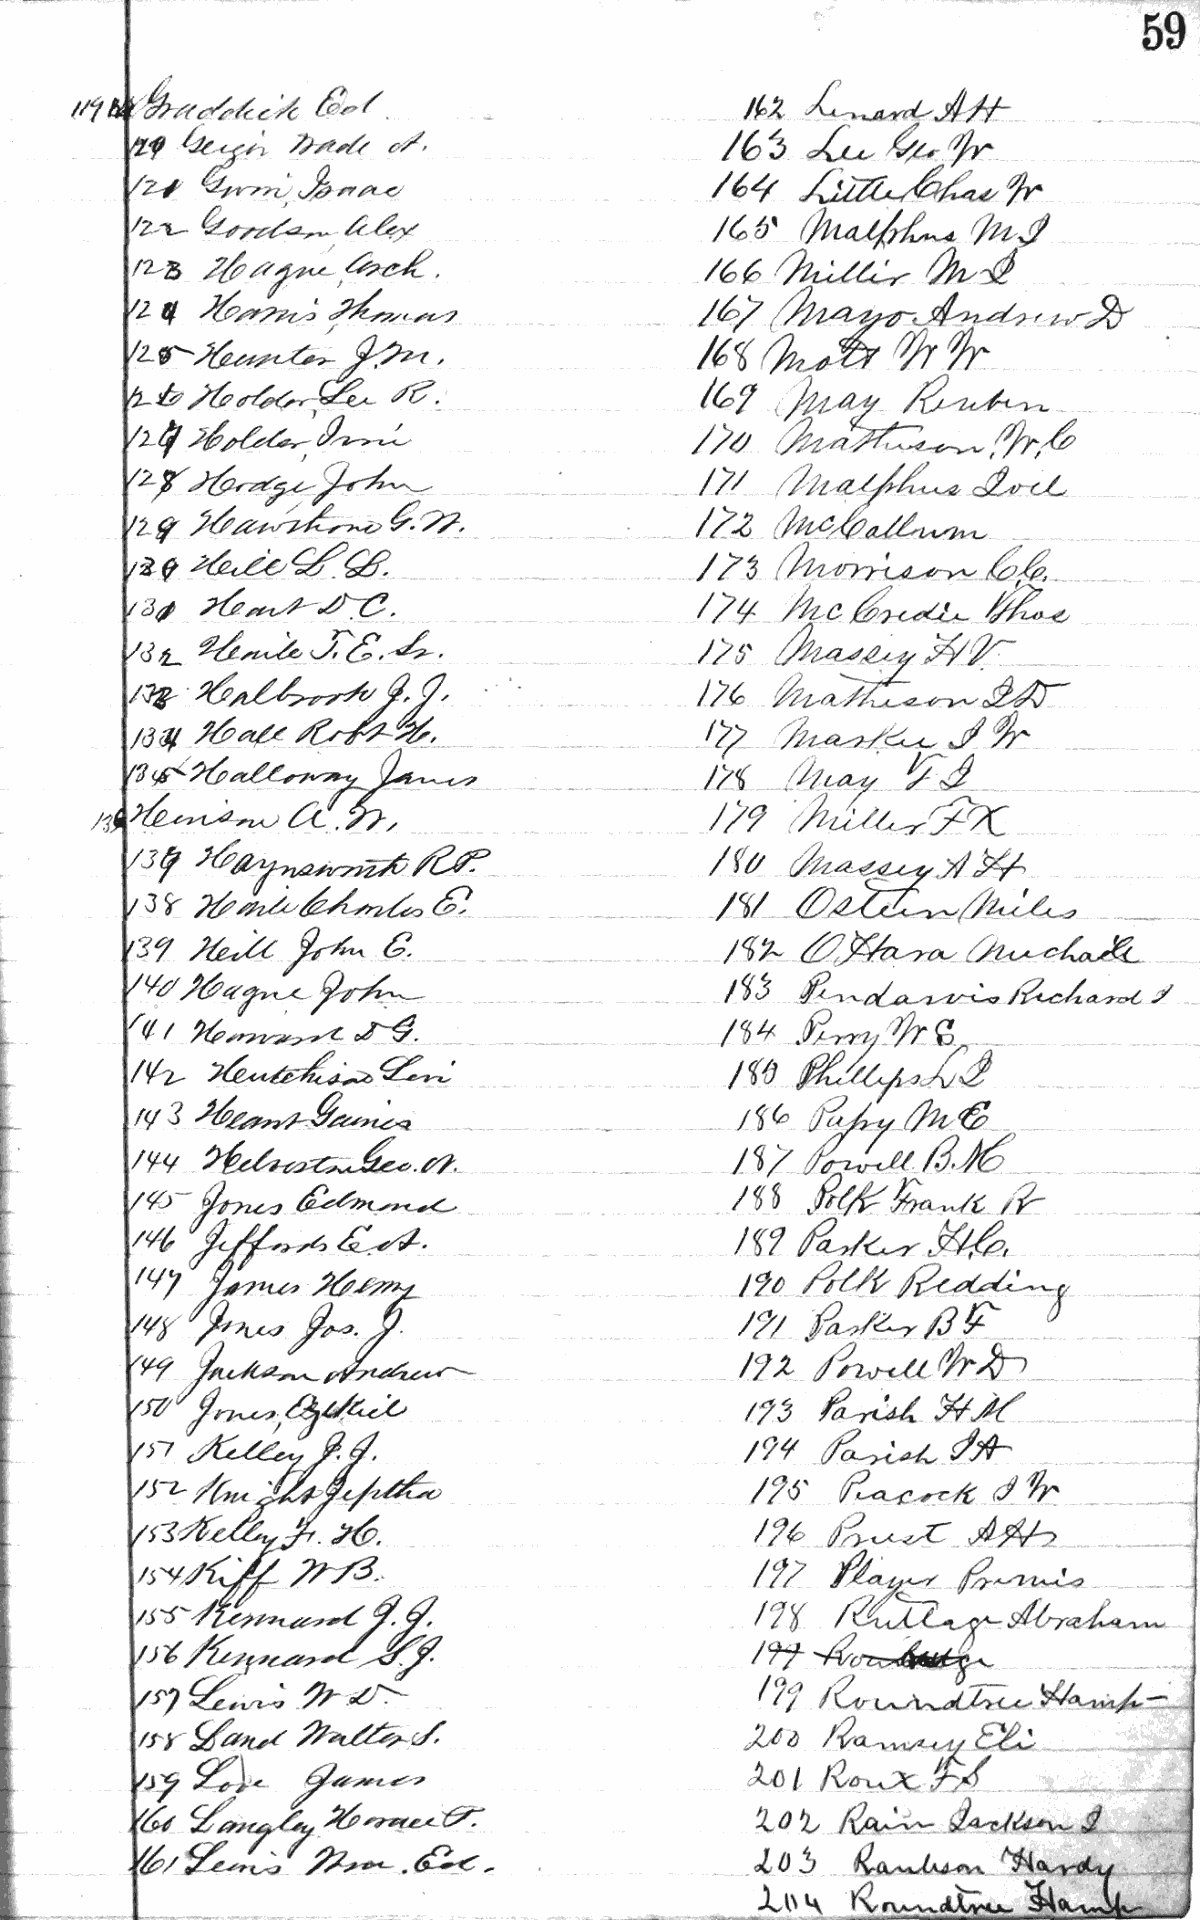 59
119 Graddick Ed
120 Geiger Wade A.
121 Gwin, Isaac
122 Goodson, Alex
123 Hague, Arch.
124 Harris, Thomas
125 Hunter J. M.
126 Holder, Lee R.
127 Holder, Irvi
128 Hodge, John
129 Hawthorn G. W.
130 Hill L. L.
131 Hart D. C.
132 Haile T. E. Sr.
133 Halbrook J. J.
134 Hall Robt H.
135 Halloway James
136 Henison A. W.
137 Haynsworth R P.
138 Haile Charles E.
139 Hill John E.
140 Hague John
141 Howard D G.
142 Hutchison Levi
143 Heart Gaines
144 Helveston Geo. A.
145 Jones Edmond
146 Jeffords E. A.
147 James Henry
148 Jones Jos. J.
149 Jackson Andrew
150 Jones, Ezekiel
151 Kelley J. J.
152 Knight Jeptha
153 Kelley F. H.
154 Kiff W B.
155 Kennard J. J.
156 Kennard S. J.
157 Lewis W D.
158 Land Walter S.
159 Love James
160 Langley Horace T.
161 Lewis Wm. Ed.
162 Lenard A H
163 Lee Geo W
164 Little Chas W
165 Malphus M I
166 Miller M I
167 Mayo Andrew D
168 Mott W W
169 May Reuben
170 Matheson, W. C
171 Malphus Joel
172 McCallum
173 Morrison C. C.
174 McCredie Thos
175 Massey H V.
176 Matheson I D
177 Markee I W
178 May F I
179 Miller F X
180 Massey A H
181 Osteen Miles
182 O Hara Michael
183 Pendarvis Richard I
184 Perry W S
185 Phillips L I
186 Papy M E
187 Powell B. M
188 Polk Frank R
189 Parker H. C.
190 Polk Redding
191 Parker B F
192 Powell W D
193 Parish H M
194 Parish I A
195 Peacock I W
196 Priest A H
197 Player Premis
198 Rutlage Abraham
199
199 Roundtree Hamp
200 Ramsey Eli
201 Roux F S
202 Rain Jackson I
203 Raulerson Hardy
204 Roundtree Hamp